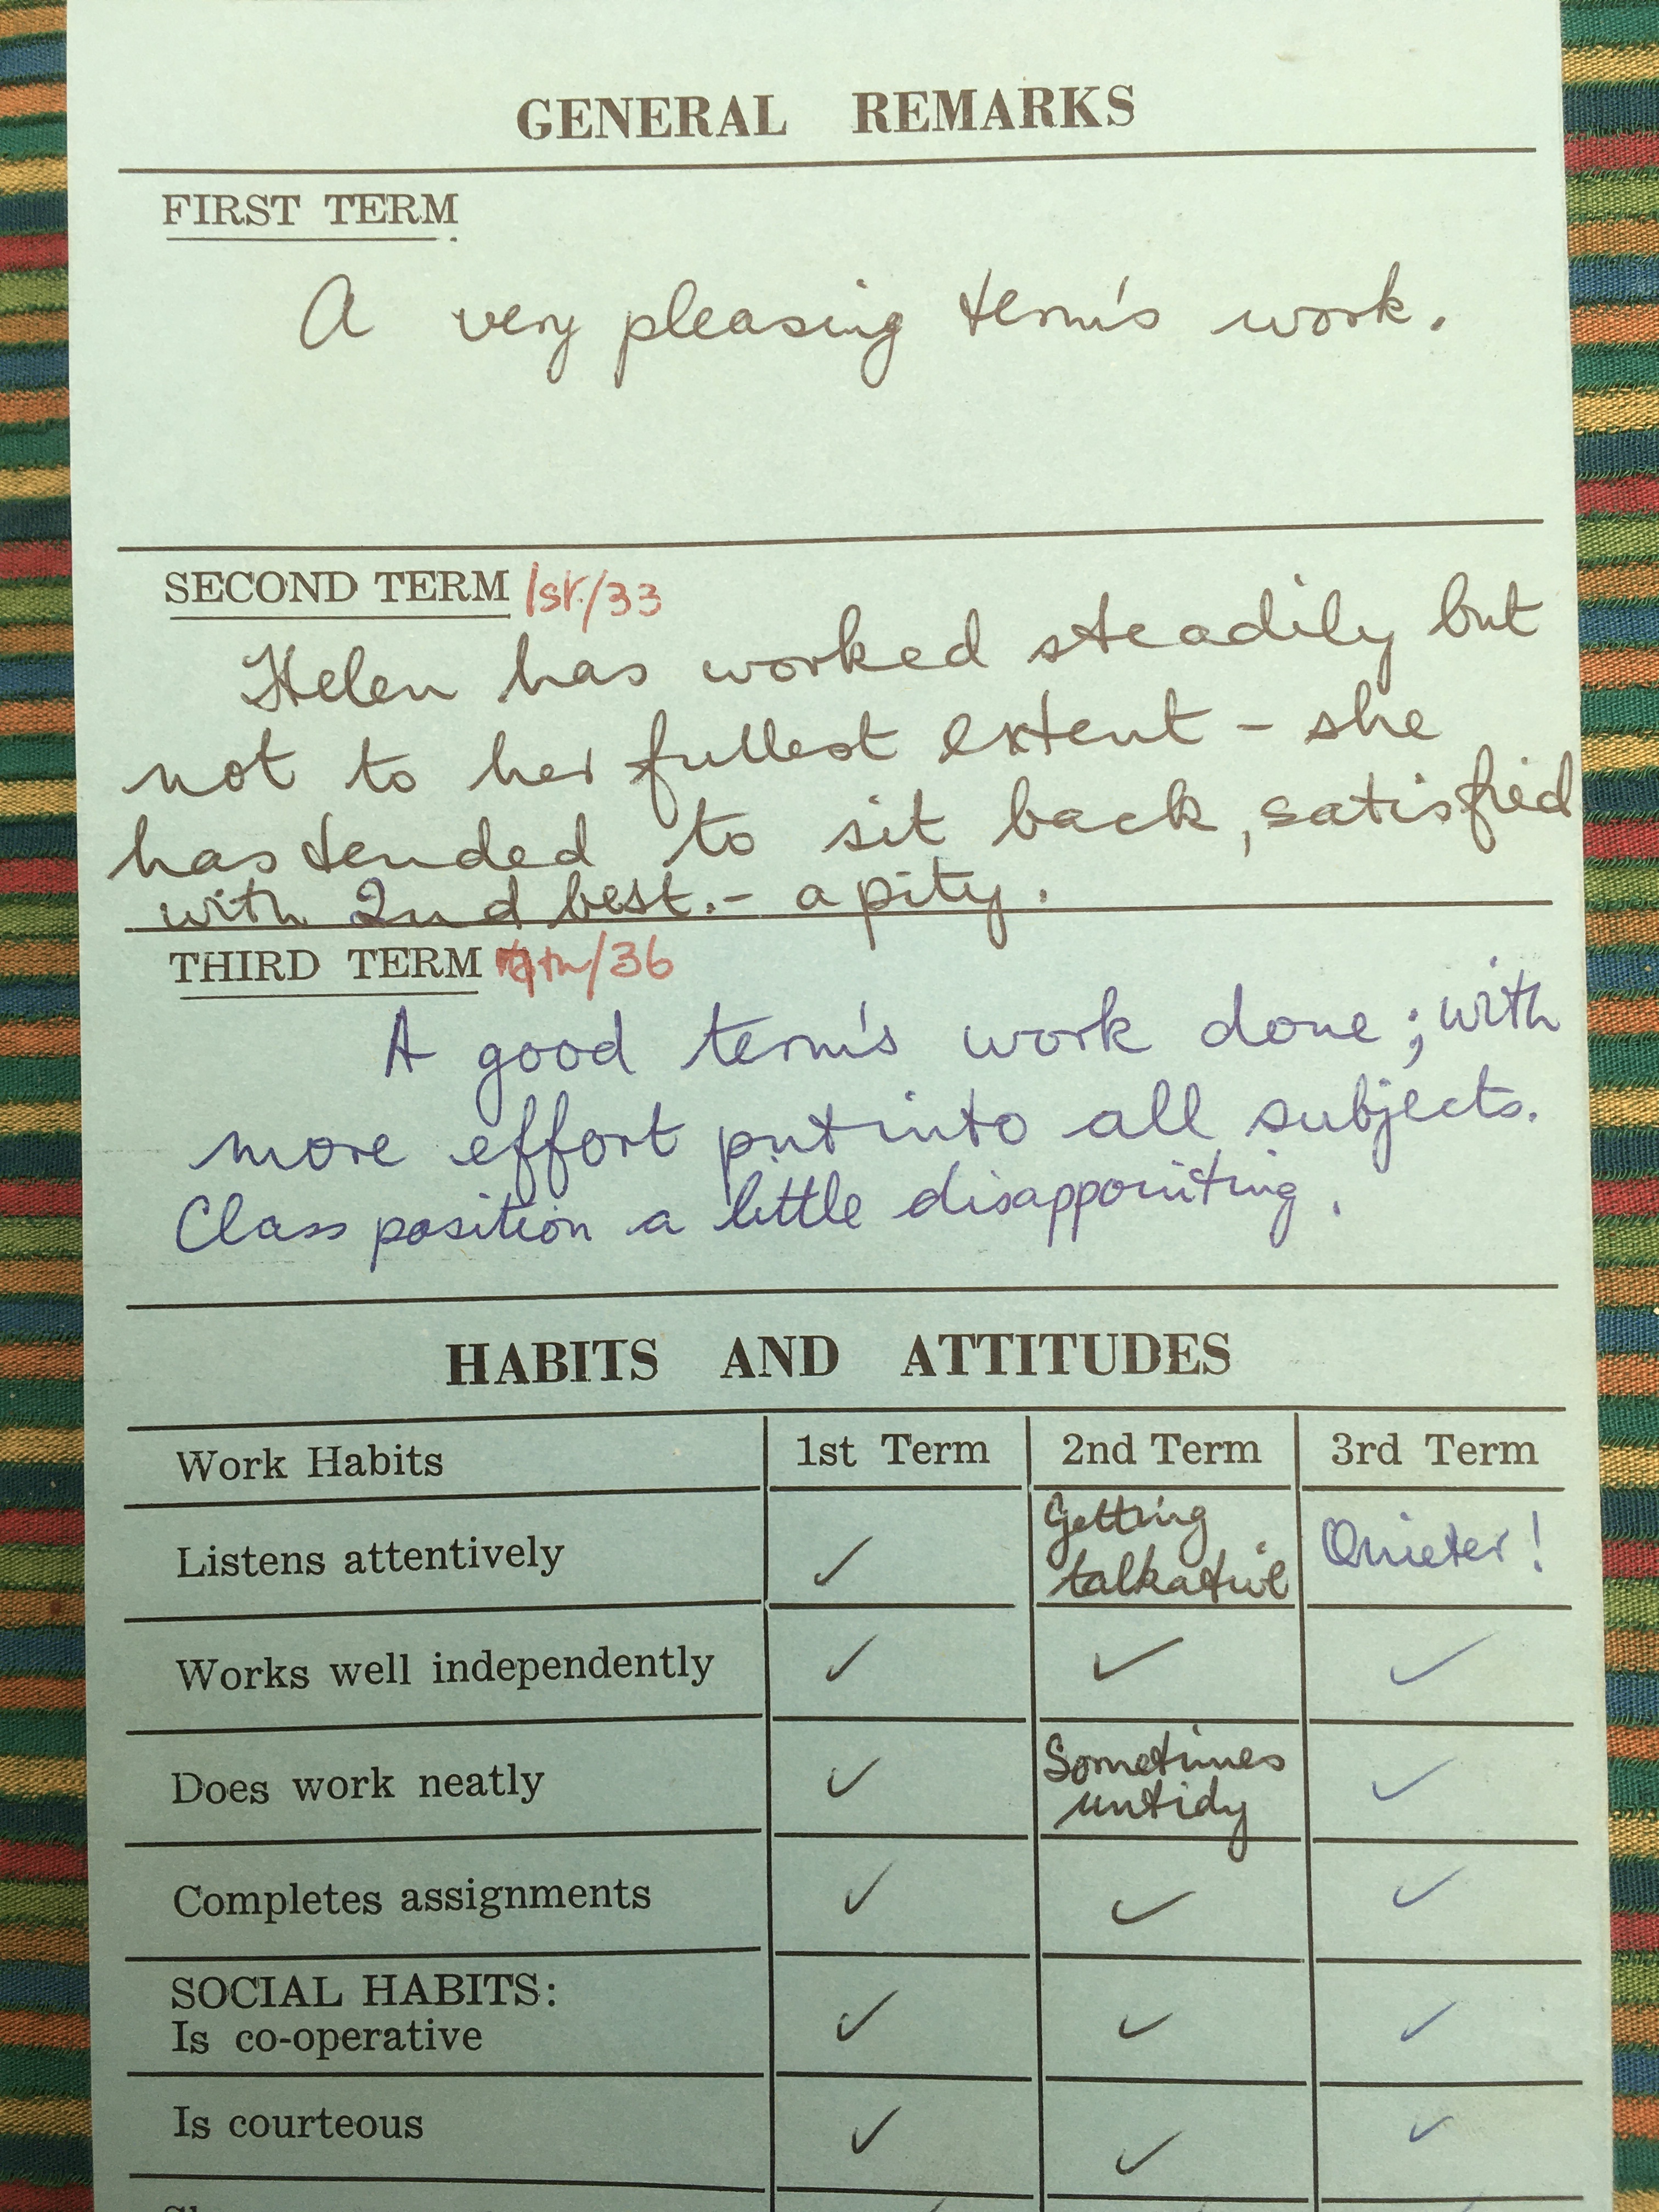 GENERAL REMARKS
FIRST TERM
A very pleasing term's work.
SECOND TERM 1st/33
Helen has worked steadily but
not to her fullest extent - she
has tended to sit back, satisfied
with 2nd best. - a pity.
THIRD TERM /36
A good term's work done; with
more effort put into all subjects.
Class position a little disappointing.
HABITS AND ATTITUDES
Work Habits 1st Term 2nd Term 3rd Term
Listens attentively ✓ Getting talkative Quieter!
Works well independently ✓ ✓ ✓
Does work neatly ✓ Sometimes untidy ✓
Completes assignments ✓ ✓ ✓
SOCIAL HABITS:
Is co-operative ✓ ✓ ✓
Is courteous ✓ ✓ ✓